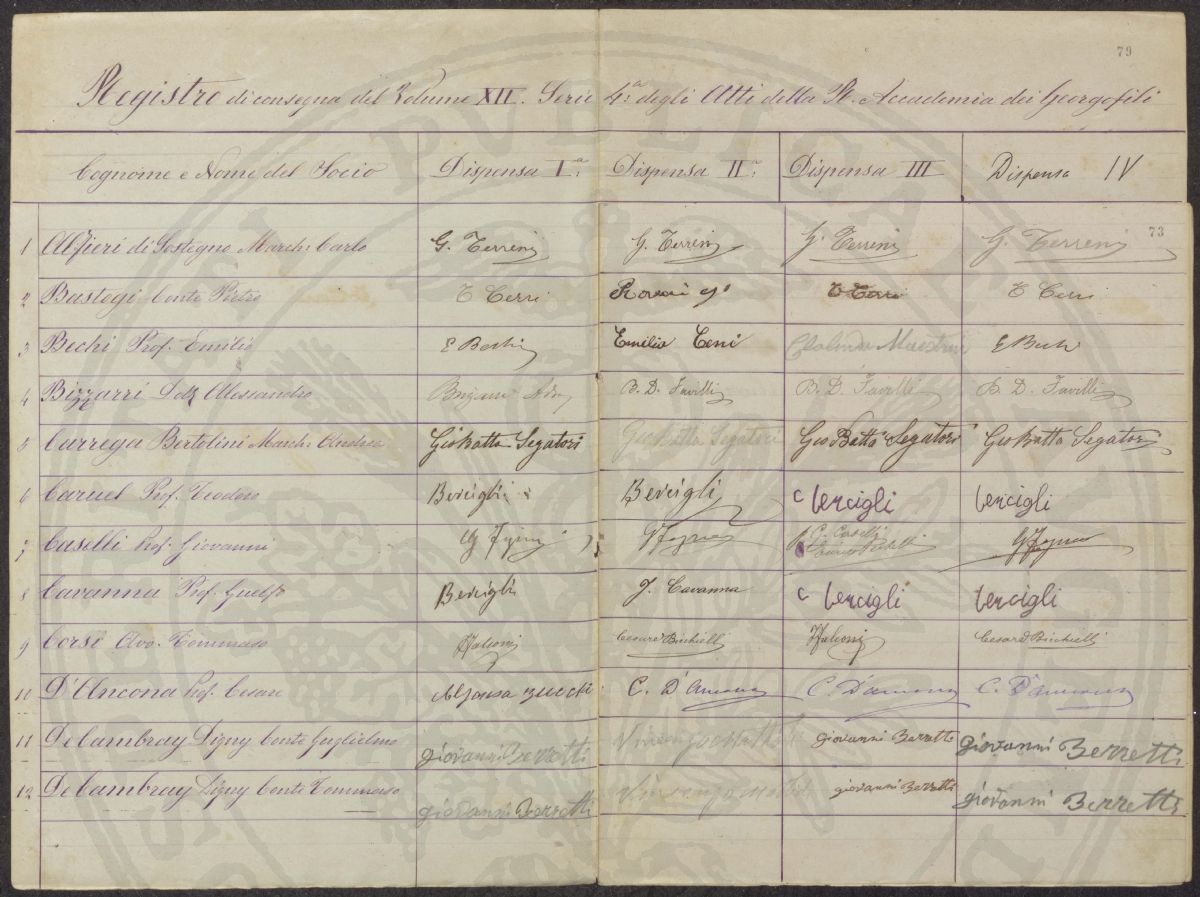 79
Registro di consegna del Volume XII. Serie 4.a degli Atti della R. Accademia dei Georgofili
Cognome e Nome del Socio Dispensa I.a Dispensa II.a Dispensa III Dispensa IV
73
1 Alfieri di Sostegno March. Carlo G. Terreni G. Terreni G. Terreni G. Terreni
2 Bastogi Conte Pietro T Cerri T Cerri
3 Bechi Prof. Emilio E Bechi Emilia Ceni E Bechi
4 Bizzarri Dott. Alessandro B. D. Favilli B. D. Favilli B. D. Favilli
5 Carrega Bertolini March. Andrea Gio Batta Segatori Gio Batta Segatori Gio Batta Segatori Gio Batta Segatori
6 Caruel Prof. Teodoro Bercigli Bercigli c bercigli bercigli
7 Caselli Prof. Giovanni p G. Caselli
8 Cavanna Prof. Guelfo Bercigli G. Cavanna c bercigli bercigli
9 Corsi Avv. Tommaso Falconi Cesare Falconi Cesare
10 D'Ancona Prof. Cesare C. D'Ancona C. D'Ancona C. D'Ancona
11 De Cambray Digny Conte Guglielmo giovanni Berretti giovanni Berretti giovanni Berretti
12 De Cambray Digny Conte Tommaso giovanni Berretti giovanni Berretti giovanni Berretti